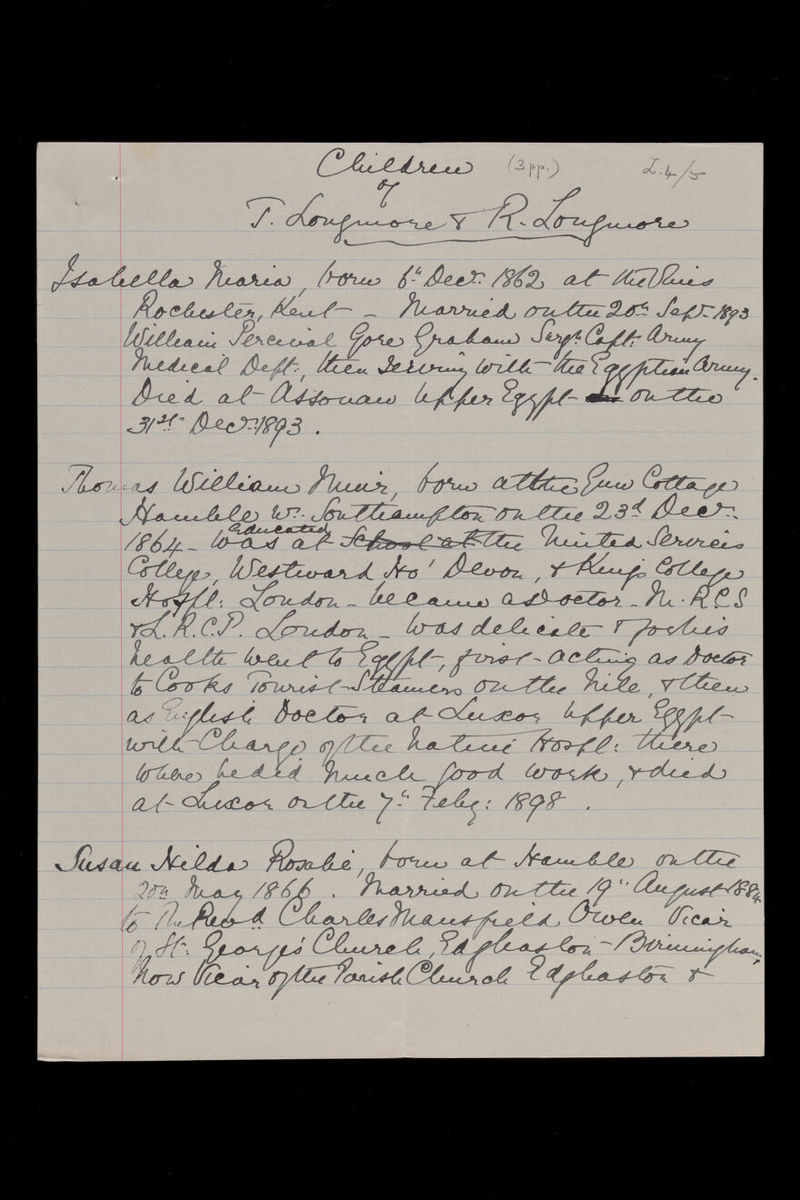 Children (3 pp.) L.4/5
of
T. Longmore & R. Longmore
Isabella Maria, born 6th Decr. 1862 at the Vines
Rochester, Kent - Married on the 20th Sept. 1893
William Percival Gore Graham Surgn. Captn. Army
Medical Dept:, then serving with the Egyptian Army.
Died at Assouan Upper Egypt on the
31st Decr. 1893.
Thomas William Muir, born at the Gun Cottage
Hamble Nr. Southampton on the 23d Decr.
1864 - was educated at School at the United Services
College, Westward Ho! Devon, & Kings College
Hospl: London - became a Doctor - M.R.C.S
& L.R.C.P. London - was delicate & for his
health went to Egypt, first - acting as Doctor
to Cooks Tourist Steamers on the Nile, & then
as English Doctor at Luxor Upper Egypt
with Charge of the Native Hospl: there
where he did much good work, & died
at Luxor on the 7th Feby: 1898.
Susan Hilda Rosalie, born at Hamble on the
20th May 1866. Married on the 19th August 1884
to The Revd. Charles Mansfield Owen Vicar
of St: George's Church, Edgbaston - Birmingham,
now Vicar of the Parish Church Edgbaston &